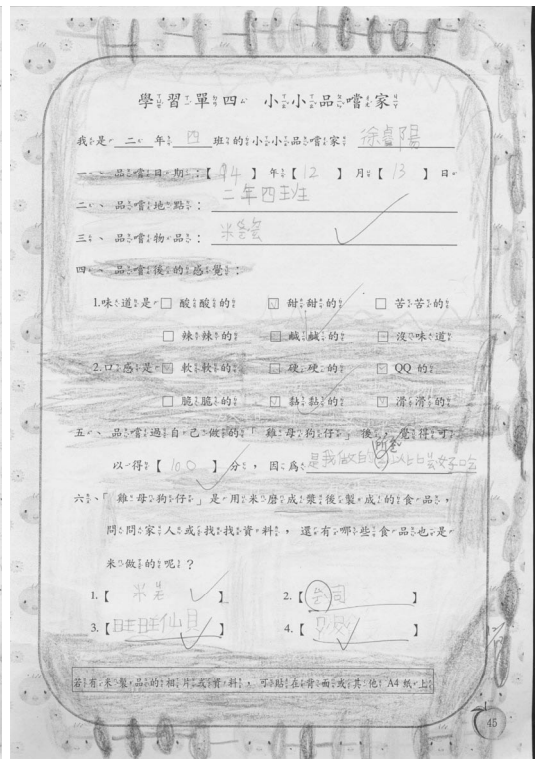 學習單四 小小品嚐家
我是 二 年 四 班的小小品嚐家
一、品嚐日期:【94】年【12】月【13】日
二、品嚐地點:二年四班
三、品嚐物品:
四、品嚐後的感覺:
1.味道是 □ 酸酸的 ☑ 甜甜的 □ 苦苦的
□ 辣辣的 □ 鹹鹹的 □ 沒味道
2.口感是 ☑ 軟軟的 □ 硬硬的 ☑ QQ的
□ 脆脆的 ☑ 黏黏的 ☑ 滑滑的
五、品嚐過自己做的「雞母狗仔」後,覺得可
以得【100】分,因為是我做的所以ㄏㄠ好吃
六、「雞母狗仔」是用米磨成漿後製成的食品,
問問家人或找找資料,還有哪些食品也是
米做的呢?
1.【 】 2.【 】
3.【旺旺仙貝】 4.【 】
若有米製品的相片或資料,可貼在背面或其他A4紙上
45